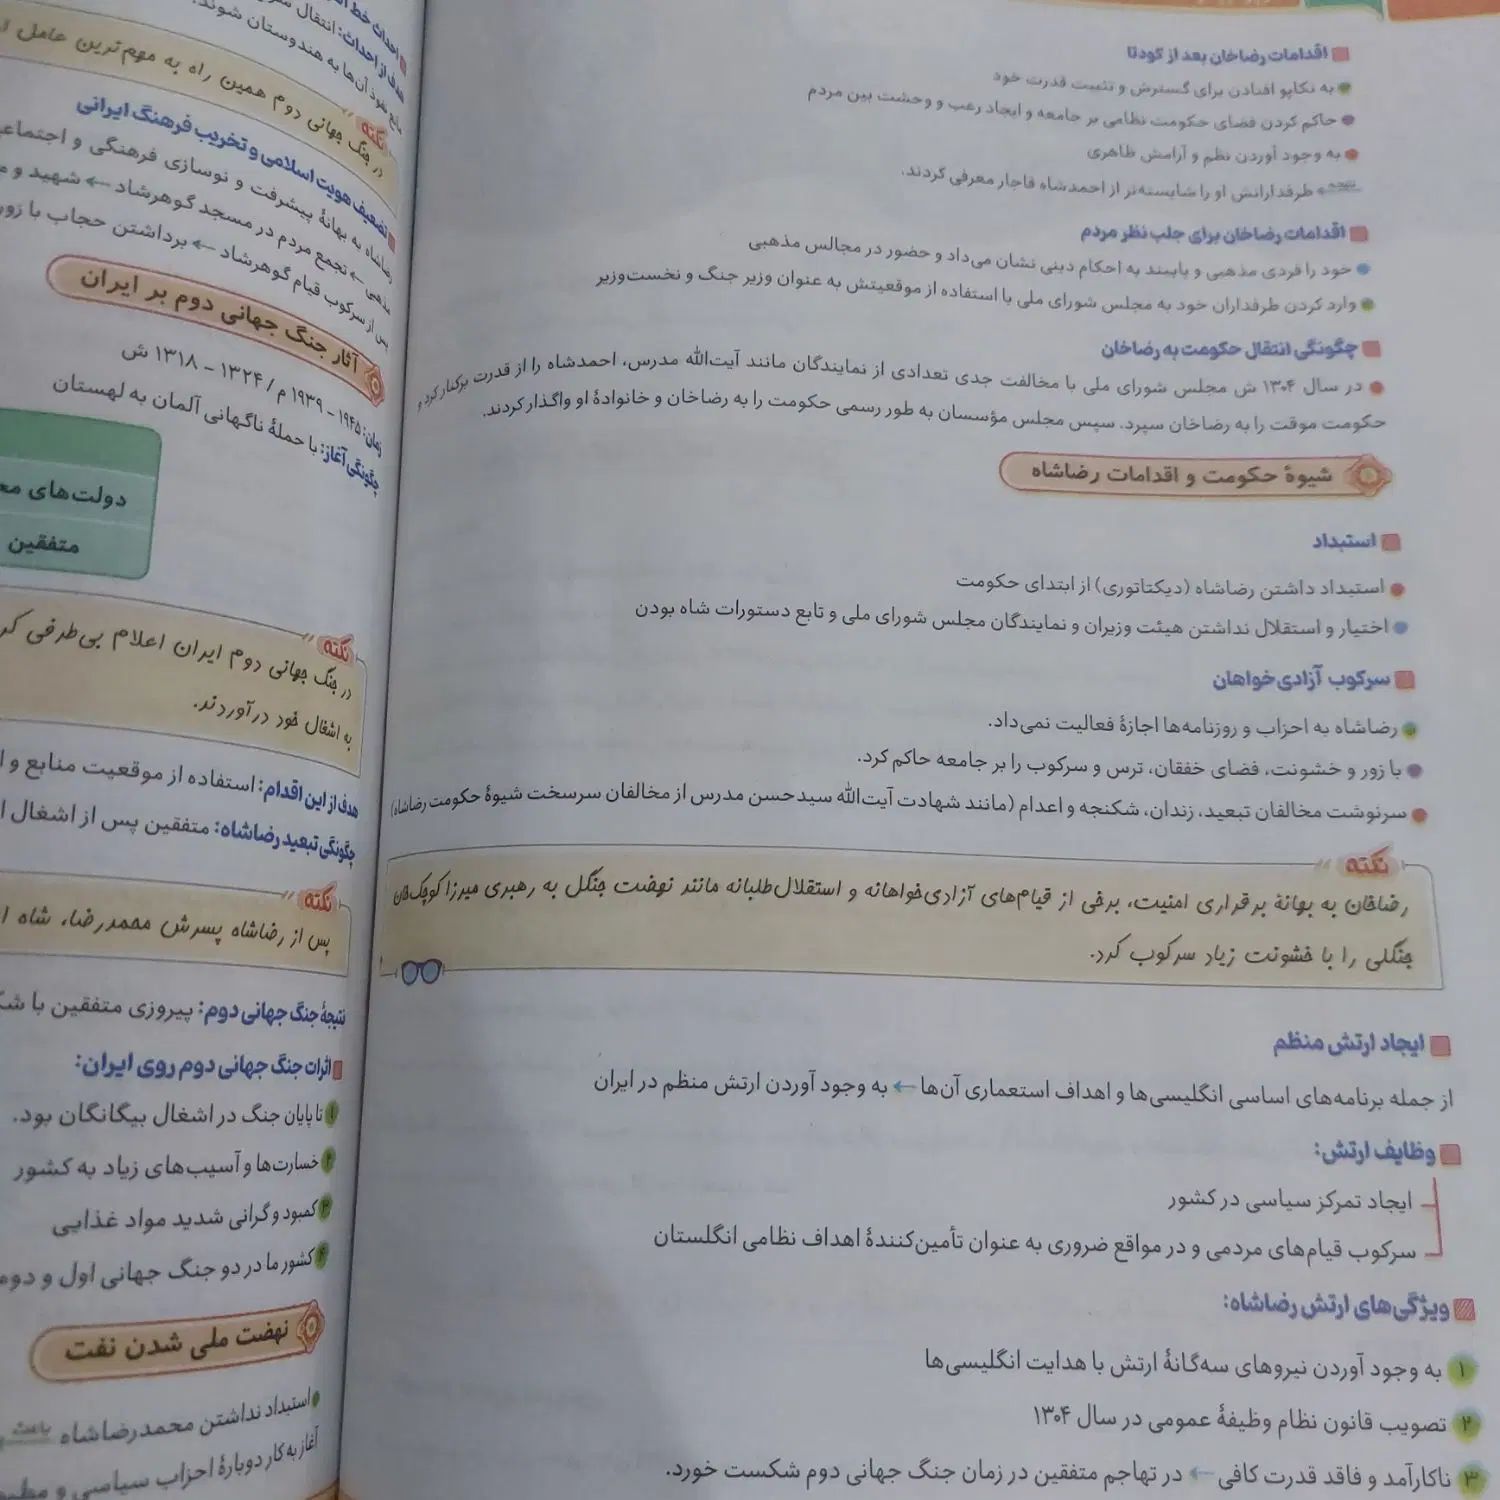 اقدامات رضاخان بعد از کودتا
به تکاپو افتادن برای گسترش و تثبیت قدرت خود
حاکم کردن فضای حکومت نظامی بر جامعه و ایجاد رعب و وحشت بین مردم
به وجود آوردن نظم و آرامش ظاهری
نتیجه← طرفدارانش او را شایسته‌تر از احمدشاه قاجار معرفی کردند.
اقدامات رضاخان برای جلب نظر مردم
خود را فردی مذهبی و پایبند به احکام دینی نشان می‌داد و حضور در مجالس مذهبی
وارد کردن طرفداران خود به مجلس شورای ملی با استفاده از موقعیتش به عنوان وزیر جنگ و نخست‌وزیر
چگونگی انتقال حکومت به رضاخان
در سال ۱۳۰۴ ش مجلس شورای ملی با مخالفت جدی تعدادی از نمایندگان مانند آیت‌الله مدرس، احمدشاه را از قدرت برکنار کرد و
حکومت موقت را به رضاخان سپرد. سپس مجلس مؤسسان به طور رسمی حکومت را به رضاخان و خانوادهٔ او واگذار کردند.
شیوهٔ حکومت و اقدامات رضاشاه
استبداد
استبداد داشتن رضاشاه (دیکتاتوری) از ابتدای حکومت
اختیار و استقلال نداشتن هیئت وزیران و نمایندگان مجلس شورای ملی و تابع دستورات شاه بودن
سرکوب آزادی‌خواهان
رضاشاه به احزاب و روزنامه‌ها اجازهٔ فعالیت نمی‌داد.
با زور و خشونت، فضای خفقان، ترس و سرکوب را بر جامعه حاکم کرد.
سرنوشت مخالفان تبعید، زندان، شکنجه و اعدام (مانند شهادت آیت‌الله سیدحسن مدرس از مخالفان سرسخت شیوهٔ حکومت رضاشاه)
نکته
رضاخان به بهانهٔ برقراری امنیت، برخی از قیام‌های آزادی‌خواهانه و استقلال‌طلبانه مانند نهضت جنگل به رهبری میرزا کوچک‌خان
جنگلی را با خشونت زیاد سرکوب کرد.
ایجاد ارتش منظم
از جمله برنامه‌های اساسی انگلیسی‌ها و اهداف استعماری آن‌ها ← به وجود آوردن ارتش منظم در ایران
وظایف ارتش:
ایجاد تمرکز سیاسی در کشور
سرکوب قیام‌های مردمی و در مواقع ضروری به عنوان تأمین‌کنندهٔ اهداف نظامی انگلستان
ویژگی‌های ارتش رضاشاه:
۱ به وجود آوردن نیروهای سه‌گانهٔ ارتش با هدایت انگلیسی‌ها
۲ تصویب قانون نظام وظیفهٔ عمومی در سال ۱۳۰۴
۳ ناکارآمد و فاقد قدرت کافی ← در تهاجم متفقین در زمان جنگ جهانی دوم شکست خورد.
احداث خط
هدف از احداث: انتقال
مانع نفوذ آن‌ها به هندوستان شوند.
نکته
در جنگ جهانی دوم همین راه به مهم‌ترین عامل
تضعیف هویت اسلامی و تخریب فرهنگ ایرانی
رضاشاه به بهانهٔ پیشرفت و نوسازی فرهنگی و
مذهبی ← تجمع مردم در مسجد گوهرشاد ← شهید و
پس از سرکوب قیام گوهرشاد ← برداشتن حجاب با زور
آثار جنگ جهانی دوم بر ایران
زمان: ۱۹۴۵ – ۱۹۳۹ م / ۱۳۲۴ – ۱۳۱۸ ش
چگونگی آغاز: با حملهٔ ناگهانی آلمان به لهستان
دولت‌های
متفقین
نکته
در جنگ جهانی دوم ایران اعلام بی‌طرفی
به اشغال خود درآوردند.
هدف از این اقدام: استفاده از موقعیت منابع و
چگونگی تبعید رضاشاه: متفقین پس از اشغال
نکته
پس از رضاشاه پسرش محمدرضا، شاه
نتیجهٔ جنگ جهانی دوم: پیروزی متفقین با
اثرات جنگ جهانی دوم روی ایران:
۱ تا پایان جنگ در اشغال بیگانگان بود.
۲ خسارت‌ها و آسیب‌های زیاد به کشور
۳ کمبود و گرانی شدید مواد غذایی
۴ کشور ما در دو جنگ جهانی اول و
نهضت ملی شدن نفت
استبداد نداشتن محمدرضاشاه باعث
آغاز به کار دوبارهٔ احزاب سیاسی و